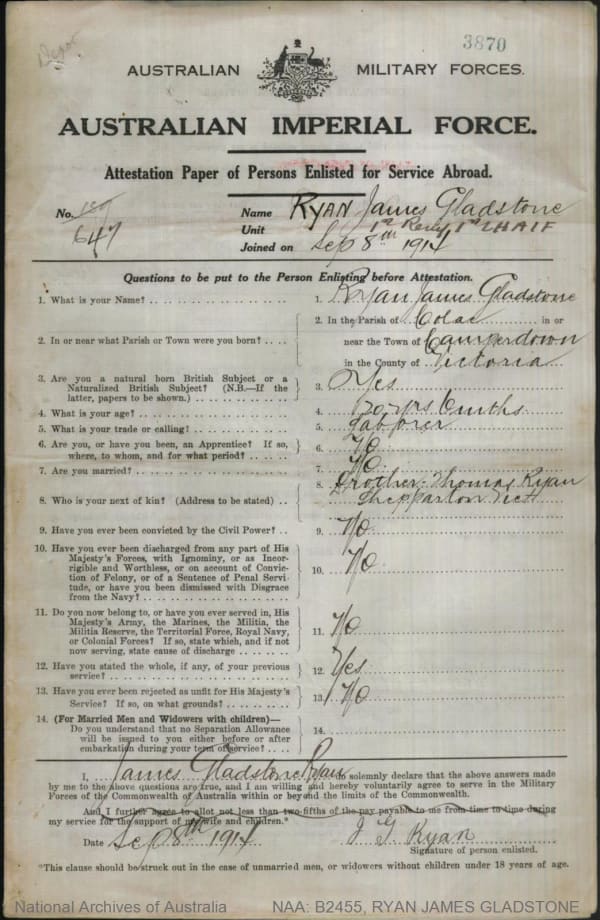 Depot
3870
AUSTRALIAN MILITARY FORCES.
AUSTRALIAN IMPERIAL FORCE.
Attestation Paper of Persons Enlisted for Service Abroad.
No. 647
Name RYAN James Gladstone
Unit
Joined on Sep 8th 1914
Questions to be put to the Person Enlisting before Attestation.
1. What is your Name? 1. Ryan James Gladstone
2. In or near what Parish or Town were you born? 2. In the Parish of Colac in or
near the Town of Camperdown
in the County of Victoria
3. Are you a natural born British Subject or a
Naturalized British Subject? (N.B.—If the
latter, papers to be shown.) 3. Yes
4. What is your age? 4. 20 yrs mths
5. What is your trade or calling? 5. Labourer
6. Are you, or have you been, an Apprentice? If so,
where, to whom, and for what period? 6. No
7. Are you married? 7. No
8. Who is your next of kin? (Address to be stated) 8. Brother: Thomas Ryan
Shepparton Vict
9. Have you ever been convicted by the Civil Power? 9. No
10. Have you ever been discharged from any part of His
Majesty's Forces, with Ignominy, or as Incor-
rigible and Worthless, or on account of Convic-
tion of Felony, or of a Sentence of Penal Servi-
tude, or have you been dismissed with Disgrace
from the Navy? 10. No
11. Do you now belong to, or have you ever served in, His
Majesty's Army, the Marines, the Militia, the
Militia Reserve, the Territorial Force, Royal Navy,
or Colonial Forces? If so, state which, and if not
now serving, state cause of discharge 11. No
12. Have you stated the whole, if any, of your previous
service? 12. Yes
13. Have you ever been rejected as unfit for His Majesty's
Service? If so, on what grounds? 13. No
14. (For Married Men and Widowers with children)—
Do you understand that no Separation Allowance
will be issued to you either before or after
embarkation during your term of service? 14.
I, James Gladstone Ryan do solemnly declare that the above answers made
by me to the above questions are true, and I am willing and hereby voluntarily agree to serve in the Military
Forces of the Commonwealth of Australia within or beyond the limits of the Commonwealth.
And I further agree to allot not less than two-fifths of the pay payable to me from time to time during
my service for the support of my wife and children.*
Date Sep 8th 1914 J G Ryan
Signature of person enlisted.
*This clause should be struck out in the case of unmarried men, or widowers without children under 18 years of age.
National Archives of Australia NAA: B2455, RYAN JAMES GLADSTONE